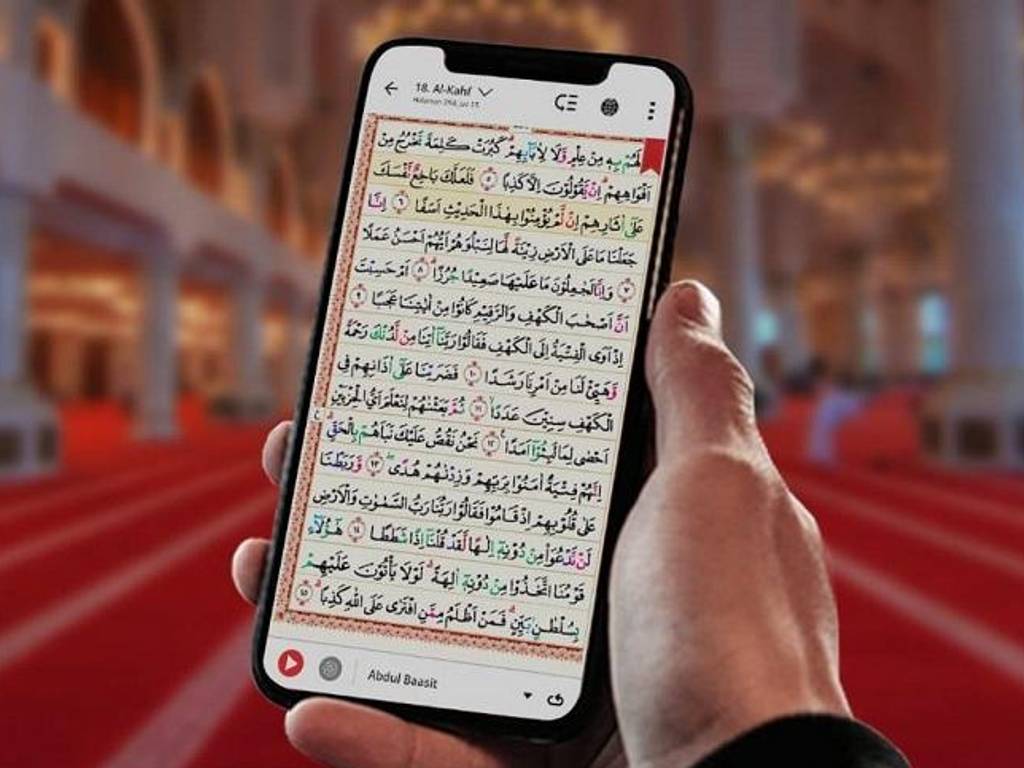 18. Al-Kahf
Halaman 294, Juz 15
لَهُمْ بِهِ مِنْ عِلْمٍ وَّلَا لِاٰبَآئِهِمْ ۗ كَبُرَتْ كَلِمَةً تَخْرُجُ مِنْ
اَفْوَاهِهِمْ ۗ اِنْ يَّقُوْلُوْنَ اِلَّا كَذِبًا ٥ فَلَعَلَّكَ بَاخِعٌ نَّفْسَكَ
عَلٰٓى اٰثَارِهِمْ اِنْ لَّمْ يُؤْمِنُوْا بِهٰذَا الْحَدِيْثِ اَسَفًا ٦ اِنَّا
جَعَلْنَا مَا عَلَى الْاَرْضِ زِيْنَةً لَّهَا لِنَبْلُوَهُمْ اَيُّهُمْ اَحْسَنُ عَمَلًا
٧ وَاِنَّا لَجٰعِلُوْنَ مَا عَلَيْهَا صَعِيْدًا جُرُزًا ۗ ٨ اَمْ حَسِبْتَ
اَنَّ اَصْحٰبَ الْكَهْفِ وَالرَّقِيْمِ كَانُوْا مِنْ اٰيٰتِنَا عَجَبًا ٩
اِذْ اَوَى الْفِتْيَةُ اِلَى الْكَهْفِ فَقَالُوْا رَبَّنَآ اٰتِنَا مِنْ لَّدُنْكَ رَحْمَةً
وَّهَيِّئْ لَنَا مِنْ اَمْرِنَا رَشَدًا ١٠ فَضَرَبْنَا عَلٰٓى اٰذَانِهِمْ فِى
الْكَهْفِ سِنِيْنَ عَدَدًا ۙ ١١ ثُمَّ بَعَثْنٰهُمْ لِنَعْلَمَ اَيُّ الْحِزْبَيْنِ
اَحْصٰى لِمَا لَبِثُوْٓا اَمَدًا ࣖ ١٢ نَحْنُ نَقُصُّ عَلَيْكَ نَبَاَهُمْ بِالْحَقِّ ۗ
اِنَّهُمْ فِتْيَةٌ اٰمَنُوْا بِرَبِّهِمْ وَزِدْنٰهُمْ هُدًى ۖ ١٣ وَّرَبَطْنَا
عَلٰى قُلُوْبِهِمْ اِذْ قَامُوْا فَقَالُوْا رَبُّنَا رَبُّ السَّمٰوٰتِ وَالْاَرْضِ
لَنْ نَّدْعُوَا۟ مِنْ دُوْنِهٖٓ اِلٰهًا لَّقَدْ قُلْنَآ اِذًا شَطَطًا ١٤ هٰٓؤُلَاۤءِ
قَوْمُنَا اتَّخَذُوْا مِنْ دُوْنِهٖٓ اٰلِهَةً ۗ لَوْلَا يَأْتُوْنَ عَلَيْهِمْ
بِسُلْطٰنٍۢ بَيِّنٍ ۗ فَمَنْ اَظْلَمُ مِمَّنِ افْتَرٰى عَلَى اللّٰهِ كَذِبًا ۗ ١٥
Abdul Baasit